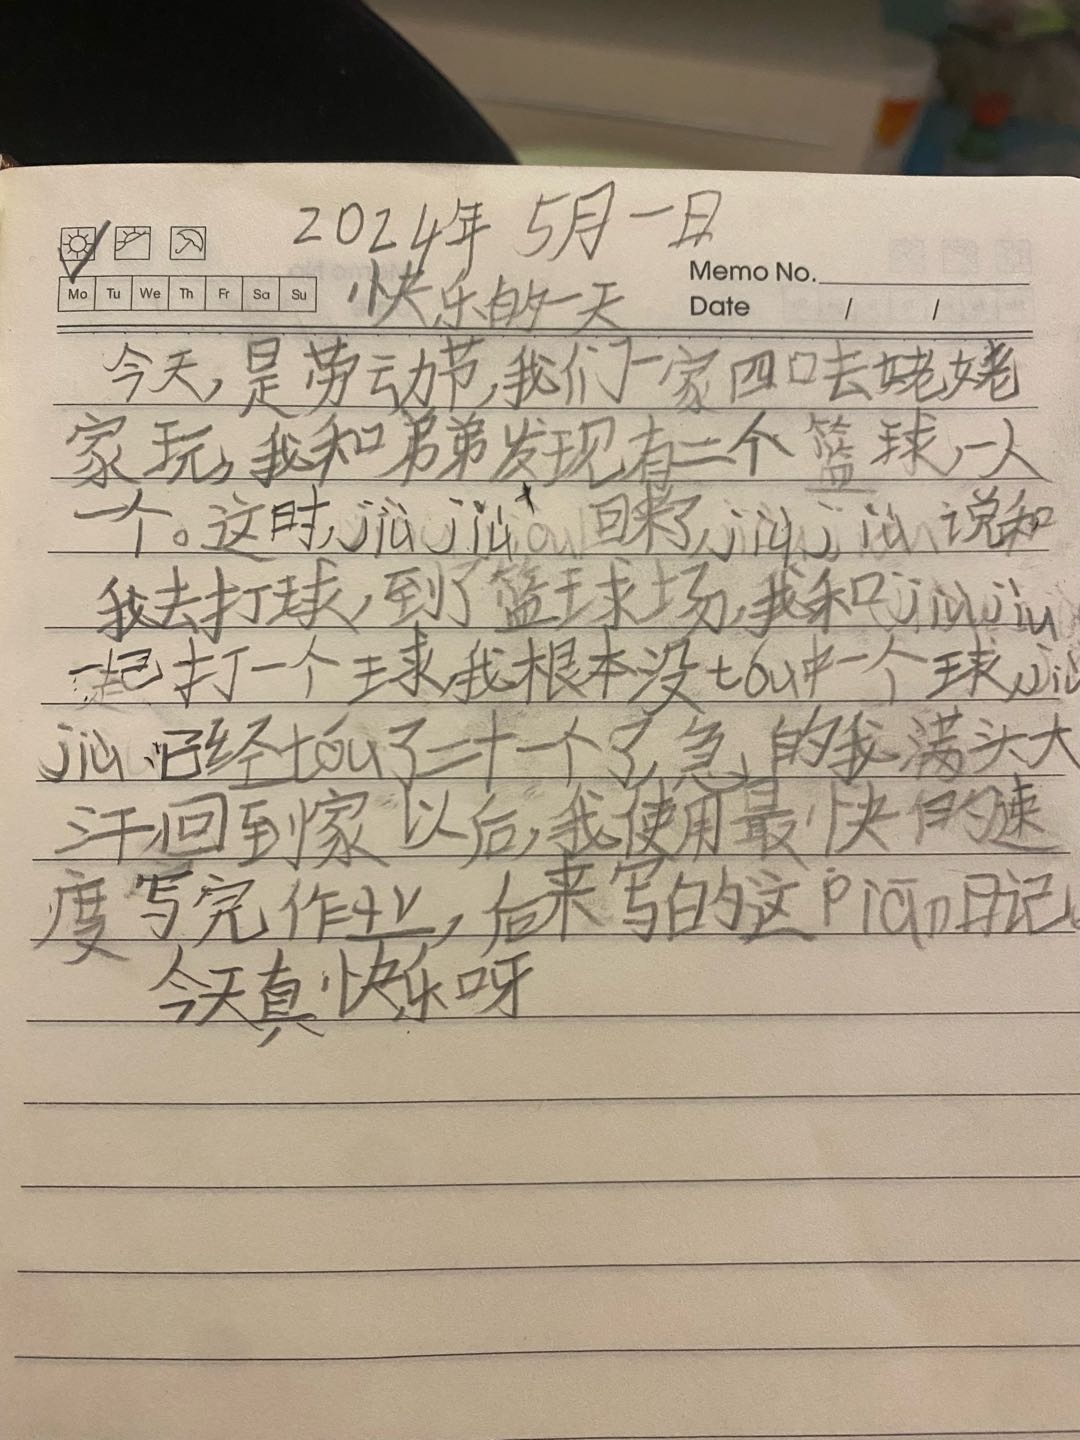 2024年 5月一日
Mo Tu We Th Fr Sa Su
快乐的一天
Memo No.
Date / /
今天,是劳动节,我们一家四口去姥姥
家玩,我和弟弟发现有二个篮球,一人
一个。这时,jiù jiu 回来了,jiù jiu 说和
我去打球,到了篮球场,我和jiù jiu
一起打一个球,我根本没tóu中一个球,jiù
jiu已经tóu了二十一个了,急,的我满头大
汗,回到家以后,我使用最快的速
度写完作业,后来写的这piān日记。
今天真快乐呀